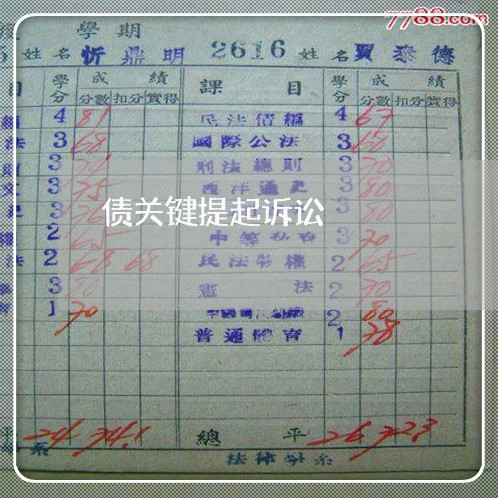 7788.com
學期
5 姓名 忻鼎明 2616 姓名 賈泰德
目 學分 成績 課目 學分 成績
分數 扣分 實得 分數 扣分 實得
4 81 民法債編 4 67
法 3 68 國際公法 3 60
3 刑法總則 3 70
文 3 75 西洋通史 3 80
3 3 80
權 2 65 3 70
法 2 68 68 民法物權 2 65
3 80 憲法 2 70
育 1 70 2 80
普通體育 1 78
债关键提起诉讼
平 24 74.1 總平 26 72.3
系 法律學系